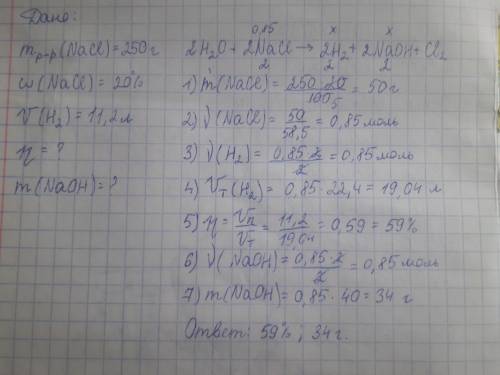 Дано:
m р-р (NaCl) = 250 г
ω (NaCl) = 20%
V (H₂) = 11,2 л
η = ?
m (NaOH) = ?
0,85 x x
2H₂O + 2NaCl → 2H₂ + 2NaOH + Cl₂
2 2 2
1) m (NaCl) = 250·20/100 5 = 50 г
2) ν (NaCl) = 50/58,5 = 0,85 моль
3) ν (H₂) = 0,85·2/2 = 0,85 моль
4) Vт (H₂) = 0,85·22,4 = 19,04 л
5) η = Vп/Vт = 11,2/19,04 = 0,59 = 59%
6) ν (NaOH) = 0,85·2/2 = 0,85 моль
7) m (NaOH) = 0,85·40 = 34 г
Ответ: 59% ; 34 г.